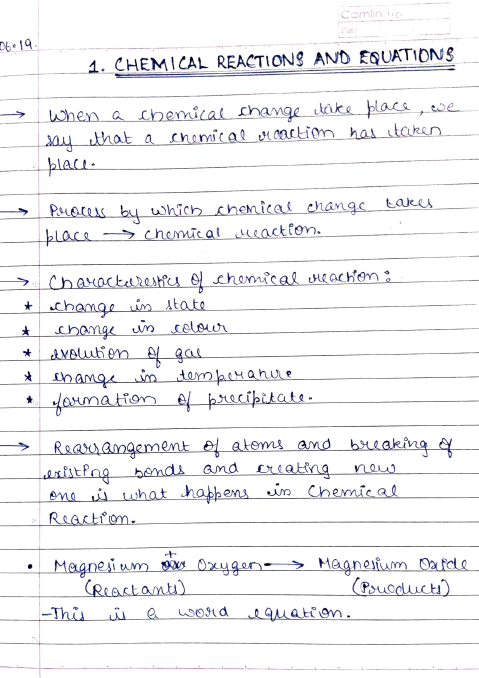 Camlin
Date
06.19.
1. CHEMICAL REACTIONS AND EQUATIONS
→ When a chemical change take place, we
say that a chemical reaction has taken
place.
→ Process by which chemical change takes
place → chemical reaction.
→ Characterestics of chemical reaction:
* change in state
* change in colour
* evolution of gas
* change in temperature
* formation of precipitate.
→ Rearrangement of atoms and breaking of
existing bonds and creating new
one is what happens in Chemical
Reaction.
• Magnesium + Oxygen → Magnesium Oxide
(Reactants) (Products)
-This is a word equation.